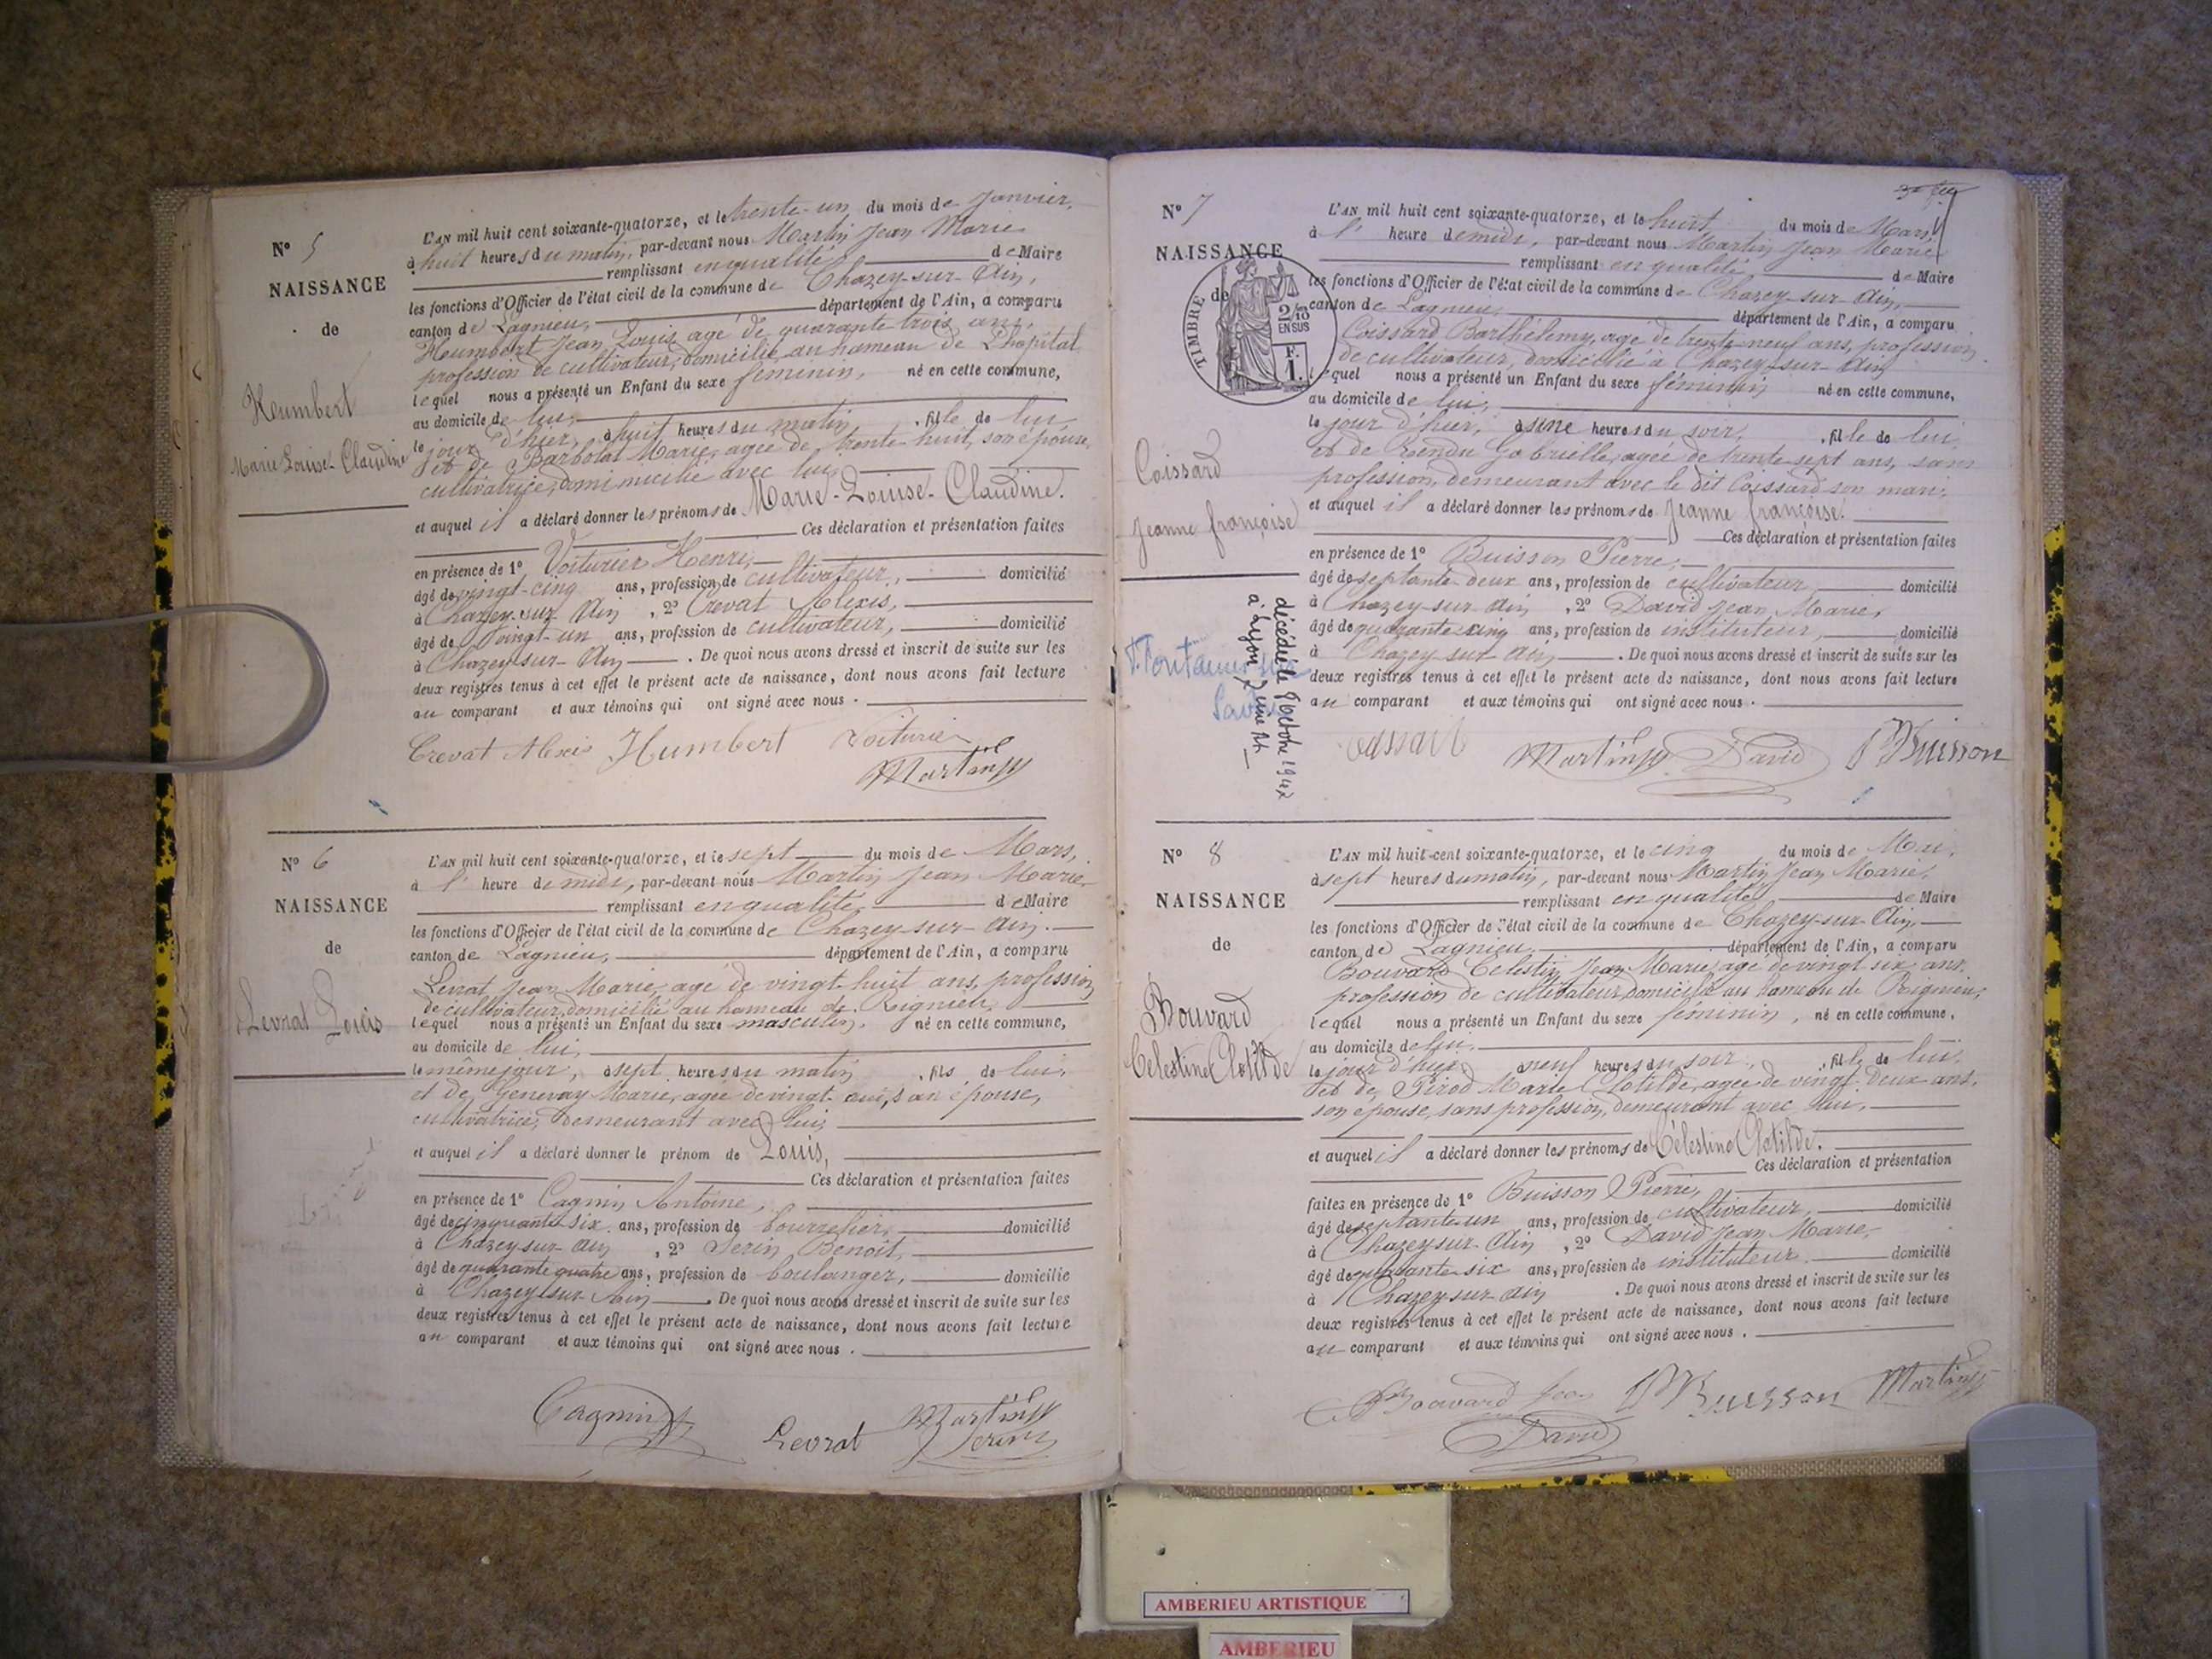 N° 5
NAISSANCE
de
Humbert
Marie Louise-Claudine
L'AN mil huit cent soixante-quatorze, et le trente-un du mois de Janvier,
à huit heures du matin, par-devant nous Martin Jean Marie
remplissant en qualité de Maire
les fonctions d'Officier de l'état civil de la commune de Chazey-sur-Ain,
canton de Lagnieu, département de l'Ain, a comparu
Humbert Jean Louis agé de quarante trois ans,
profession de cultivateur, domicilié au hameau de L'hôpital
lequel nous a présenté un Enfant du sexe féminin, né en cette commune,
au domicile de lui,
le jour d'hier, à huit heures du matin, fille de lui
et de Barbolat Marie, agée de trente-huit, son épouse,
cultivatrice, domimicilié avec lui,
et auquel il a déclaré donner les prénoms de Marie-Louise-Claudine.
Ces déclaration et présentation faites
en présence de 1° Voiturier Henri,
âgé de vingt-cinq ans, profession de cultivateur, domicilié
à Chazey-sur-Ain, 2° Crevat Alexis,
âgé de vingt-un ans, profession de cultivateur, domicilié
à Chazey-sur-Ain. De quoi nous avons dressé et inscrit de suite sur les
deux registres tenus à cet effet le présent acte de naissance, dont nous avons fait lecture
au comparant et aux témoins qui ont signé avec nous.
Crevat Alexis Humbert Voiturier
Martin
N° 6
NAISSANCE
de
Levrat Louis
L'AN mil huit cent soixante-quatorze, et le sept du mois de Mars,
à l' heure de midi, par-devant nous Martin Jean Marie
remplissant en qualité de Maire
les fonctions d'Officier de l'état civil de la commune de Chazey-sur-Ain.
canton de Lagnieu, département de l'Ain, a comparu
Levrat Jean Marie, agé de vingt-huit ans, profession
de cultivateur, domicilié au hameau de Rignieu,
lequel nous a présenté un Enfant du sexe masculin, né en cette commune,
au domicile de lui,
le même jour, à sept heures du matin, fils de lui,
et de Genevay Marie, agée de vingt son épouse,
cultivatrice, demeurant avec lui,
et auquel il a déclaré donner le prénom de Louis,
Ces déclaration et présentation faites
en présence de 1° Cagnin Antoine,
âgé de cinquante-six ans, profession de bourrelier, domicilié
à Chazey-sur-Ain, 2° Serin Benoit,
âgé de quarante quatre ans, profession de boulanger, domicilié
à Chazey-sur-Ain. De quoi nous avons dressé et inscrit de suite sur les
deux registres tenus à cet effet le présent acte de naissance, dont nous avons fait lecture
au comparant et aux témoins qui ont signé avec nous.
Cagnin Levrat Martin
Serin
N° 7
NAISSANCE
de
TIMBRE
2/10
EN SUS
F.
1.
Coissard
Jeanne françoise
décédée le 8 octobre 1942
à Lyon
L'AN mil huit cent soixante-quatorze, et le huit du mois de Mars,
à l' heure de midi, par-devant nous Martin Jean Marie
remplissant en qualité, de Maire
les fonctions d'Officier de l'état civil de la commune de Chazey-sur-Ain,
canton de Lagnieu, département de l'Ain, a comparu
Coissard Barthélemy, agé de trente-neuf ans, profession
de cultivateur, domicilié à Chazey-sur-Ain
lequel nous a présenté un Enfant du sexe féminin né en cette commune,
au domicile de lui,
le jour d'hier, à une heures du soir, fille de lui
et de Rendu Gabrielle, agée de trente-sept ans, sans
profession, demeurant avec le dit Coissard son mari,
et auquel il a déclaré donner les prénoms de Jeanne françoise.
Ces déclaration et présentation faites
en présence de 1° Buisson Pierre,
âgé de septante-deux ans, profession de cultivateur, domicilié
à Chazey-sur-Ain, 2° David Jean Marie,
âgé de quarante-cinq ans, profession de instituteur, domicilié
à Chazey-sur-Ain. De quoi nous avons dressé et inscrit de suite sur les
deux registres tenus à cet effet le présent acte de naissance, dont nous avons fait lecture
au comparant et aux témoins qui ont signé avec nous.
Martin David P Buisson
N° 8
NAISSANCE
de
Bouvard
Célestine Clotilde
L'AN mil huit cent soixante-quatorze, et le cinq du mois de Mai,
à sept heures du matin, par-devant nous Martin Jean Marie,
remplissant en qualité de Maire
les fonctions d'Officier de l'état civil de la commune de Chazey-sur-Ain,
canton de Lagnieu, département de l'Ain, a comparu
Bouvard Célestin Jean Marie, agé de vingt six ans,
profession de cultivateur, domicilié au hameau de Rignieu,
lequel nous a présenté un Enfant du sexe féminin, né en cette commune,
au domicile de lui,
le jour d'hier, à neuf heures du soir, fille de lui,
et de Pirod Marie Clotilde, agée de vingt-deux ans,
son épouse, sans profession, demeurant avec lui,
et auquel il a déclaré donner les prénoms de Célestine Clotilde.
Ces déclaration et présentation
faites en présence de 1° Buisson Pierre,
âgé de septante un ans, profession de cultivateur, domicilié
à Chazey-sur-Ain, 2° David Jean Marie,
âgé de quarante-six ans, profession de instituteur domicilié
à Chazey-sur-Ain. De quoi nous avons dressé et inscrit de suite sur les
deux registres tenus à cet effet le présent acte de naissance, dont nous avons fait lecture
au comparant et aux témoins qui ont signé avec nous.
Bouvard Jean P Buisson Martin
David
AMBERIEU ARTISTIQUE
AMBERIEU